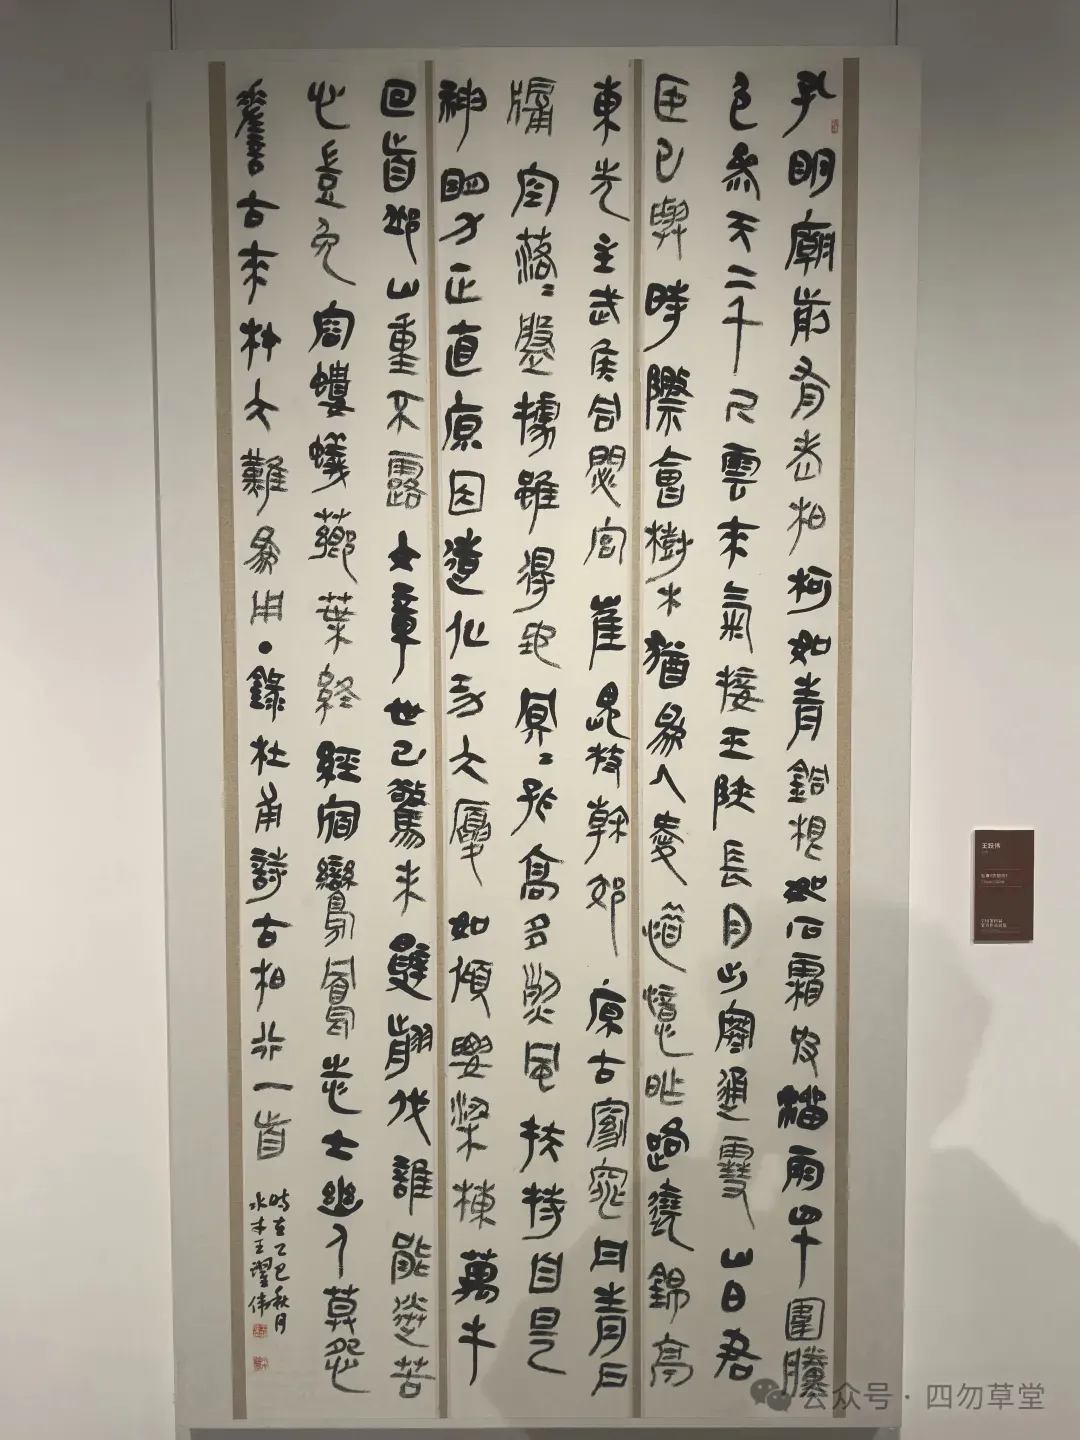 孔明廟前有老柏柯如青銅根如石霜皮溜雨四十圍黱
色參天二千尺雲來氣接巫峽長月出寒通雪山白君
臣已與時際會樹木猶為人愛惜憶昨路繞錦亭
東先主武侯同閟宮崔嵬枝幹郊原古窈窕丹青戶
牖空落〻盤據雖得地冥〻孤高多烈風扶持自是
神明力正直原因造化功大廈如傾要梁棟萬牛
回首邱山重不露文章世已驚未辭翦伐誰能送苦
心豈免容螻蟻薌葉終經宿鸞鳳志士幽人莫怨
嗟古來材大難為用·錄杜甫詩古柏行一首
時在乙巳秋月
水木王躍伟
王跃伟
公众号·四勿草堂